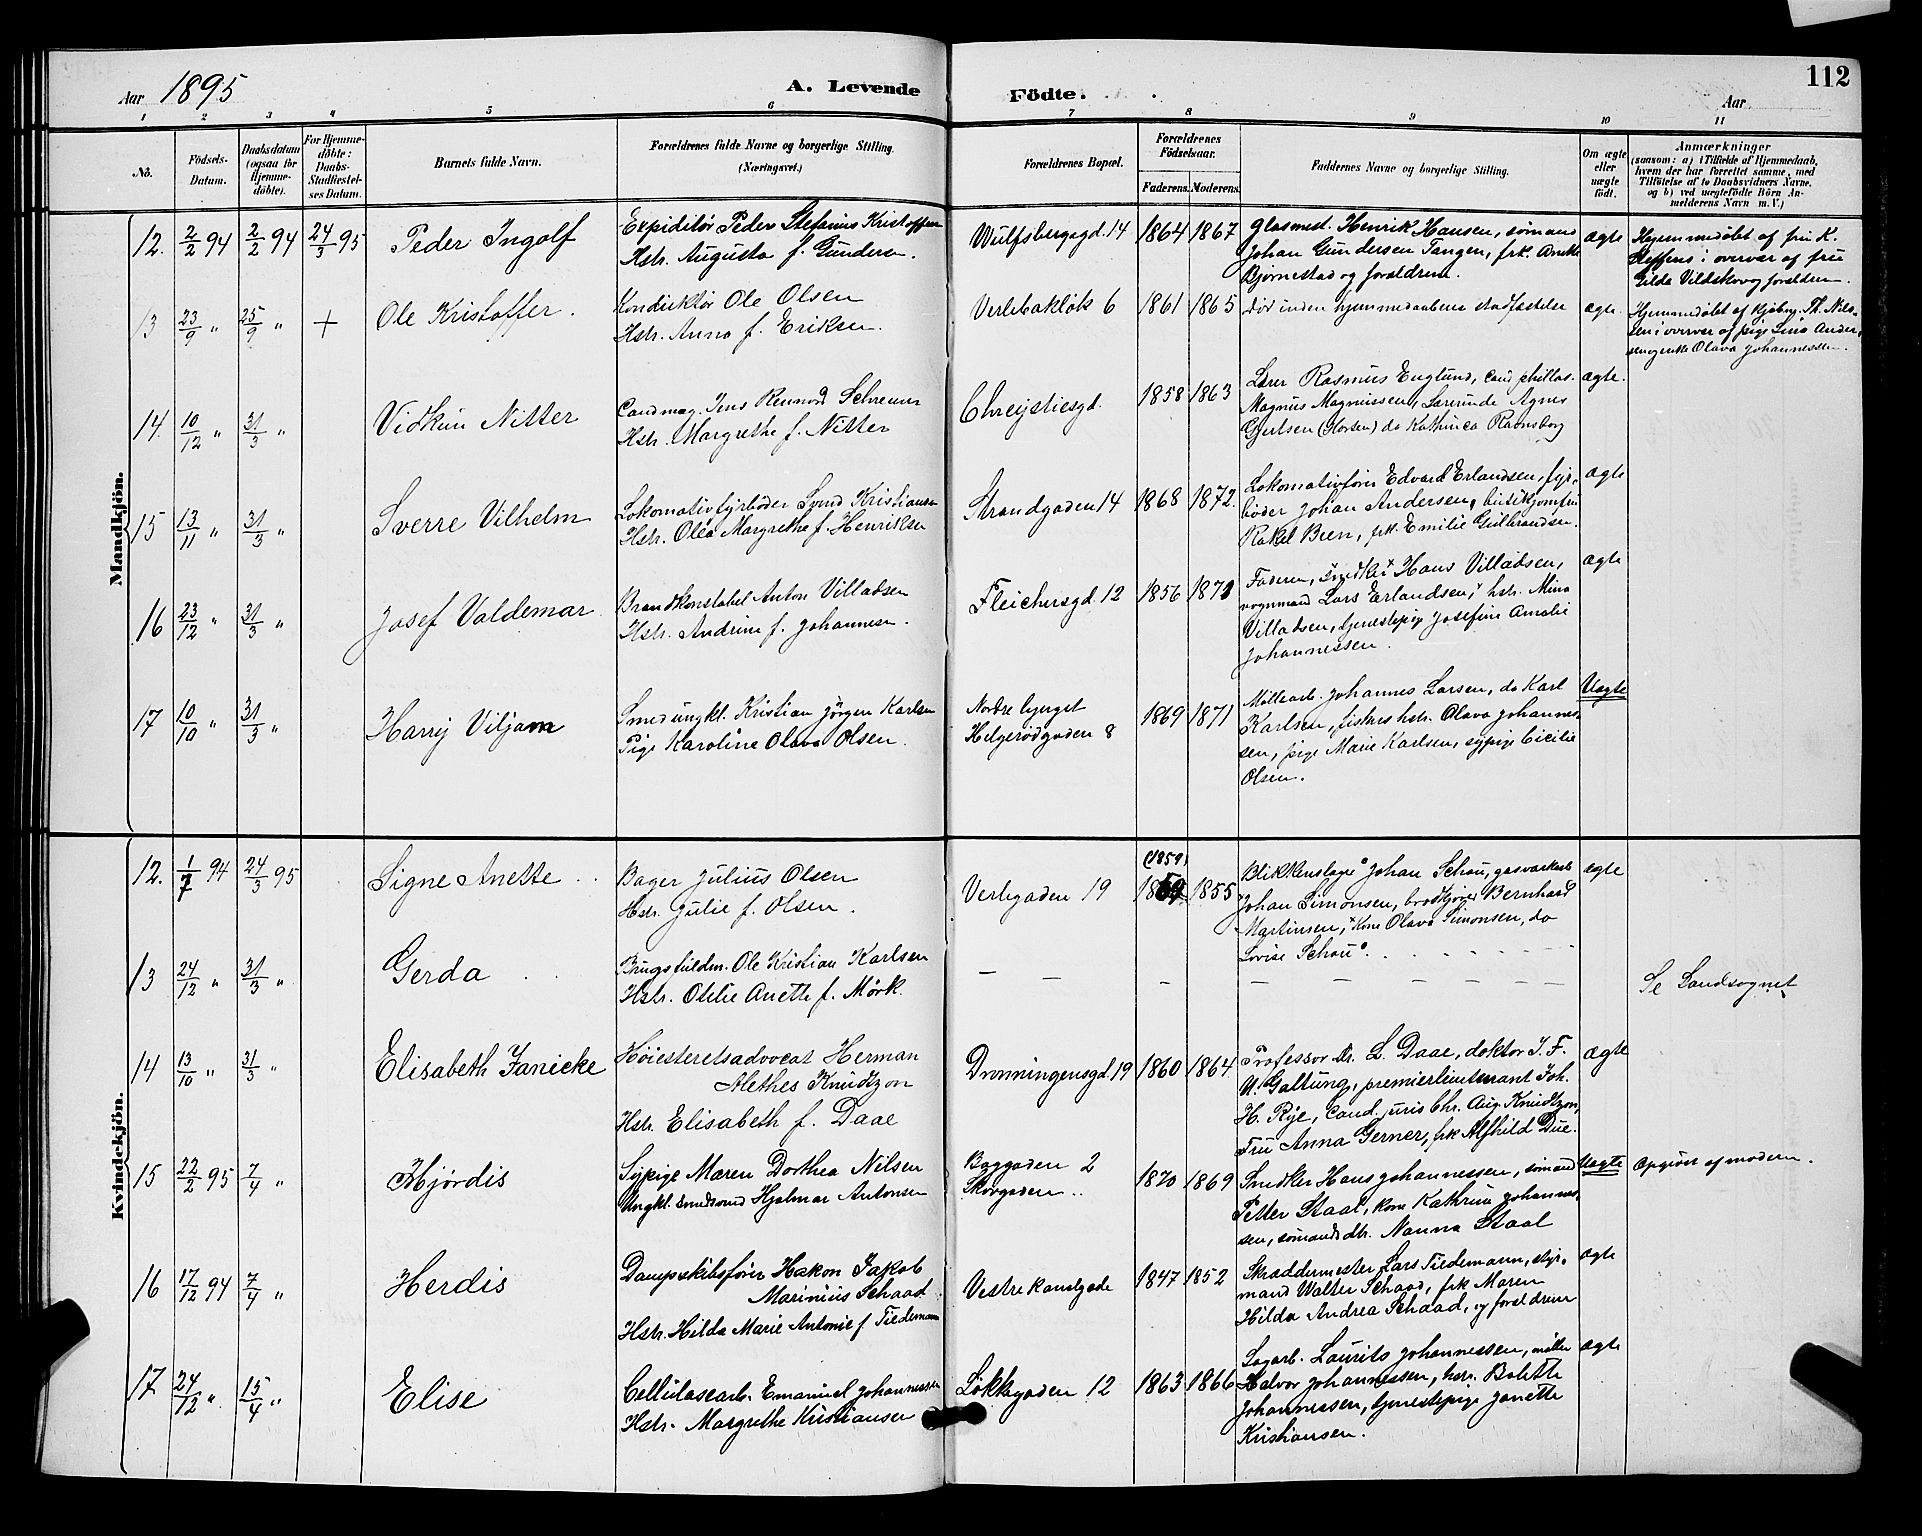 112
Aar 1895
A. Levende Födte.
Aar
1 2 3 4 5 6 7 8 9 10 11
No.
Födsels-Datum.
Daabsdatum (ogsaa for Hjemme-döbte).
For Hjemme-döbte: Daabs-Stadfæstel-ses Datum.
Barnets fulde Navn.
Forældrenes fulde Navne og borgerlige Stilling. (Næringsvei.)
Forældrenes Bopæl.
Forældrenes Födselsaar.
Faderens. Moderens.
Faddernes Navne og borgerlige Stilling.
Om ægte eller uægte födt.
Anmærkninger
(saasom: a) i Tilfælde af Hjemmedaab,
hvem der har forrettet samme, med
Tilföielse af to Daabsvidners Navne,
og b) ved uægtefödte Börn An-
melderens Navn m. V.)
Mandkjön.
12. 2/2 94 2/2 94 24/3 95 Peder Ingolf
Expeditør Peder Stefanus Kristoffersen
Hstr. Augusta f. Gundersen.
Wulfsbergsgd. 14 1864 1867
Glasmest. Henrik Hansen, sømand
Johan Gundersen Tangen, frk. Anette
Bjørnestad og forældrene.
ægte
Hjemmedøbt af fru K.
Steffens i overvær af frú
Gilda Vildskov og forældrene.
13 23/9 " 25/9 " + Ole Kristoffer.
Konduktør Ole Olsen
Hstr. Anna f. Eriksen.
Verlebakløk 6 1861 1865
død inden hjemmedaabens stadfæstelse
ægte.
Hjemmedøbt af Kjøbm. Th. Nils-
sen i overvær af pige Lina Ander-
sen og enke Olava Johannessen.
14. 10/12 " 31/3 " Vidkun Nitter
Cand mag. Jens Rennord Schreiner
Hstr. Margrethe f. Nitter
Chrejstiesgd. 1858 1863
Lærer Rasmus Englund, cand philos.
Magnus Magnussen, Lærerinde Agnes
Gjertsen (Horten) do Kathinca Ravnsborg
ægte.
15 13/11 " 31/3 " Sverre Vilhelm
Lokomotivfyrbøder Syvert Kristiansen
Hstr. Olea Margrethe f. Henriksen
Strandgaden 14 1868 1872.
Lokomotivfører Edvard Erlandsen, fyr-
bøder Johan Andersen, butikjomfru
Rakel Bren, frk. Emilie Gulbrandsen.
ægte
16 23/12 " 31/3 " Josef Valdemar
Brandkonstabel Anton Villadsen
Hstr. Andrine f. Johannesen.
Fleichersgd. 12 1856 1871
Faderen, snedker Hans Villadsen,
vognmand Lars Erlandsen, hstr. Mina
Villadsen, tjenestepige Josefine Amalie
Johannessen.
ægte
17 10/10 " 31/3 " Harry Viljam
Smed ungkl. Kristian Jörgen Karlsen
Pige Karoline Olava Olsen.
Nordre byerget
Helgerødgaden 8 1869 1871
Møllearb. Johannes Larsen, do Karl
Karlsen, fiskers hstr. Olava Johannes-
sen, pige Marie Karlsen, sypige Cicilie
Olsen.
Uægte
Kvindekjön.
12. 1/7 94 24/3 95 Signe Anette
Bager Julius Olsen
Hstr. Julie f. Olsen.
Verlegaden 19 (1859) 1859 1855
Blikkenslager Johan Schou, gasværksarb.
Johan Simonsen, brødkjører Bernhard
Martinsen, Kone Olava Simonsen, do
Lovise Schou.
ægte
13 24/12 " 31/3 " Gerda
Brugsfuldm. Ole Kristian Karlsen
Hstr. Otilie Anette f. Mørk.
Se Landsognet
14 13/10 " 31/3 " Elisabeth Janicke
Høiesteretsadvocat Herman
Alethes Knudtzon
Hstr. Elisabeth f. Daae
Dronningensgd. 19 1860 1864
Professor Dr. L. Daae, doktor J. F.
U. Galtung, premierlieutenant Joh.
H. Rye, Cand. juris Chr. Aug. Knudtzon,
Fru Anna Gerner, frk Alfhild Due.
ægte
15 22/2 95 7/4 " Hjørdis
Sypige Maren Dorthea Nilsen
Ungkl. smedsvend Hjalmar Antonsen
Baggaden 2
Skovgaden " 1870 1869
Snedker Hans Johannessen, sömand
Petter Staal, kone Kathrine Johannes-
sen, sömands dtr. Nanna Staal
Uægte
Opgivet af moderen.
16 17/12 94 7/4 " Herdis
Dampskibsfører Hakon Jakob
Marinius Schaad
Hstr. Hilda Marie Antonie f. Tiedemann
Vestre kanalgade 1847 1852
Skræddermester Lars Tiedemann, styr-
mand Walter Schaad, frk Maren
Hilda Andrea Schaad, og forældrene
ægte
17 24/12 " 15/4 " Elise
Cellulosearb. Emanuel Johannessen
Hstr. Margrethe Kristiansen
Løkkegaden 12 1863 1866
Sagarb. Laurits Johannessen, møller
Halvor Johannessen, hstr. Bolette
Johannessen, tjenestepige Janette
Kristiansen.
ægte